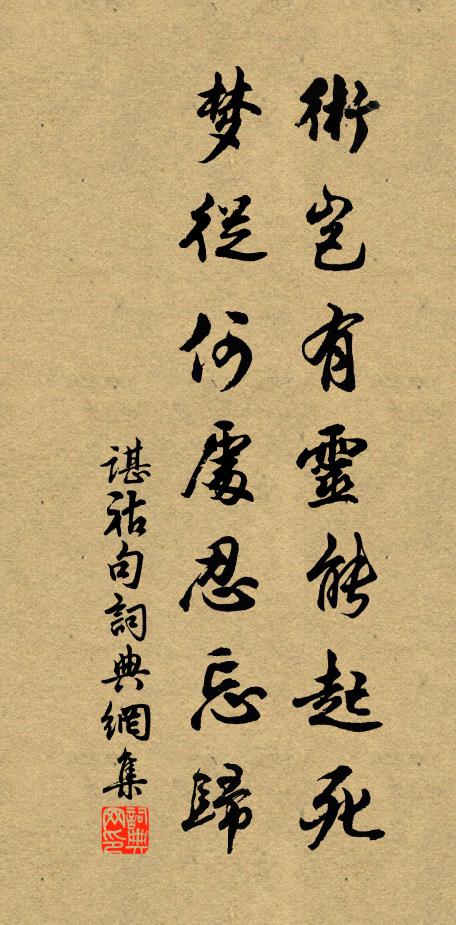 術豈有靈能起死
梦從何處忍忘歸
谌祜句詞典網集
詞典网印